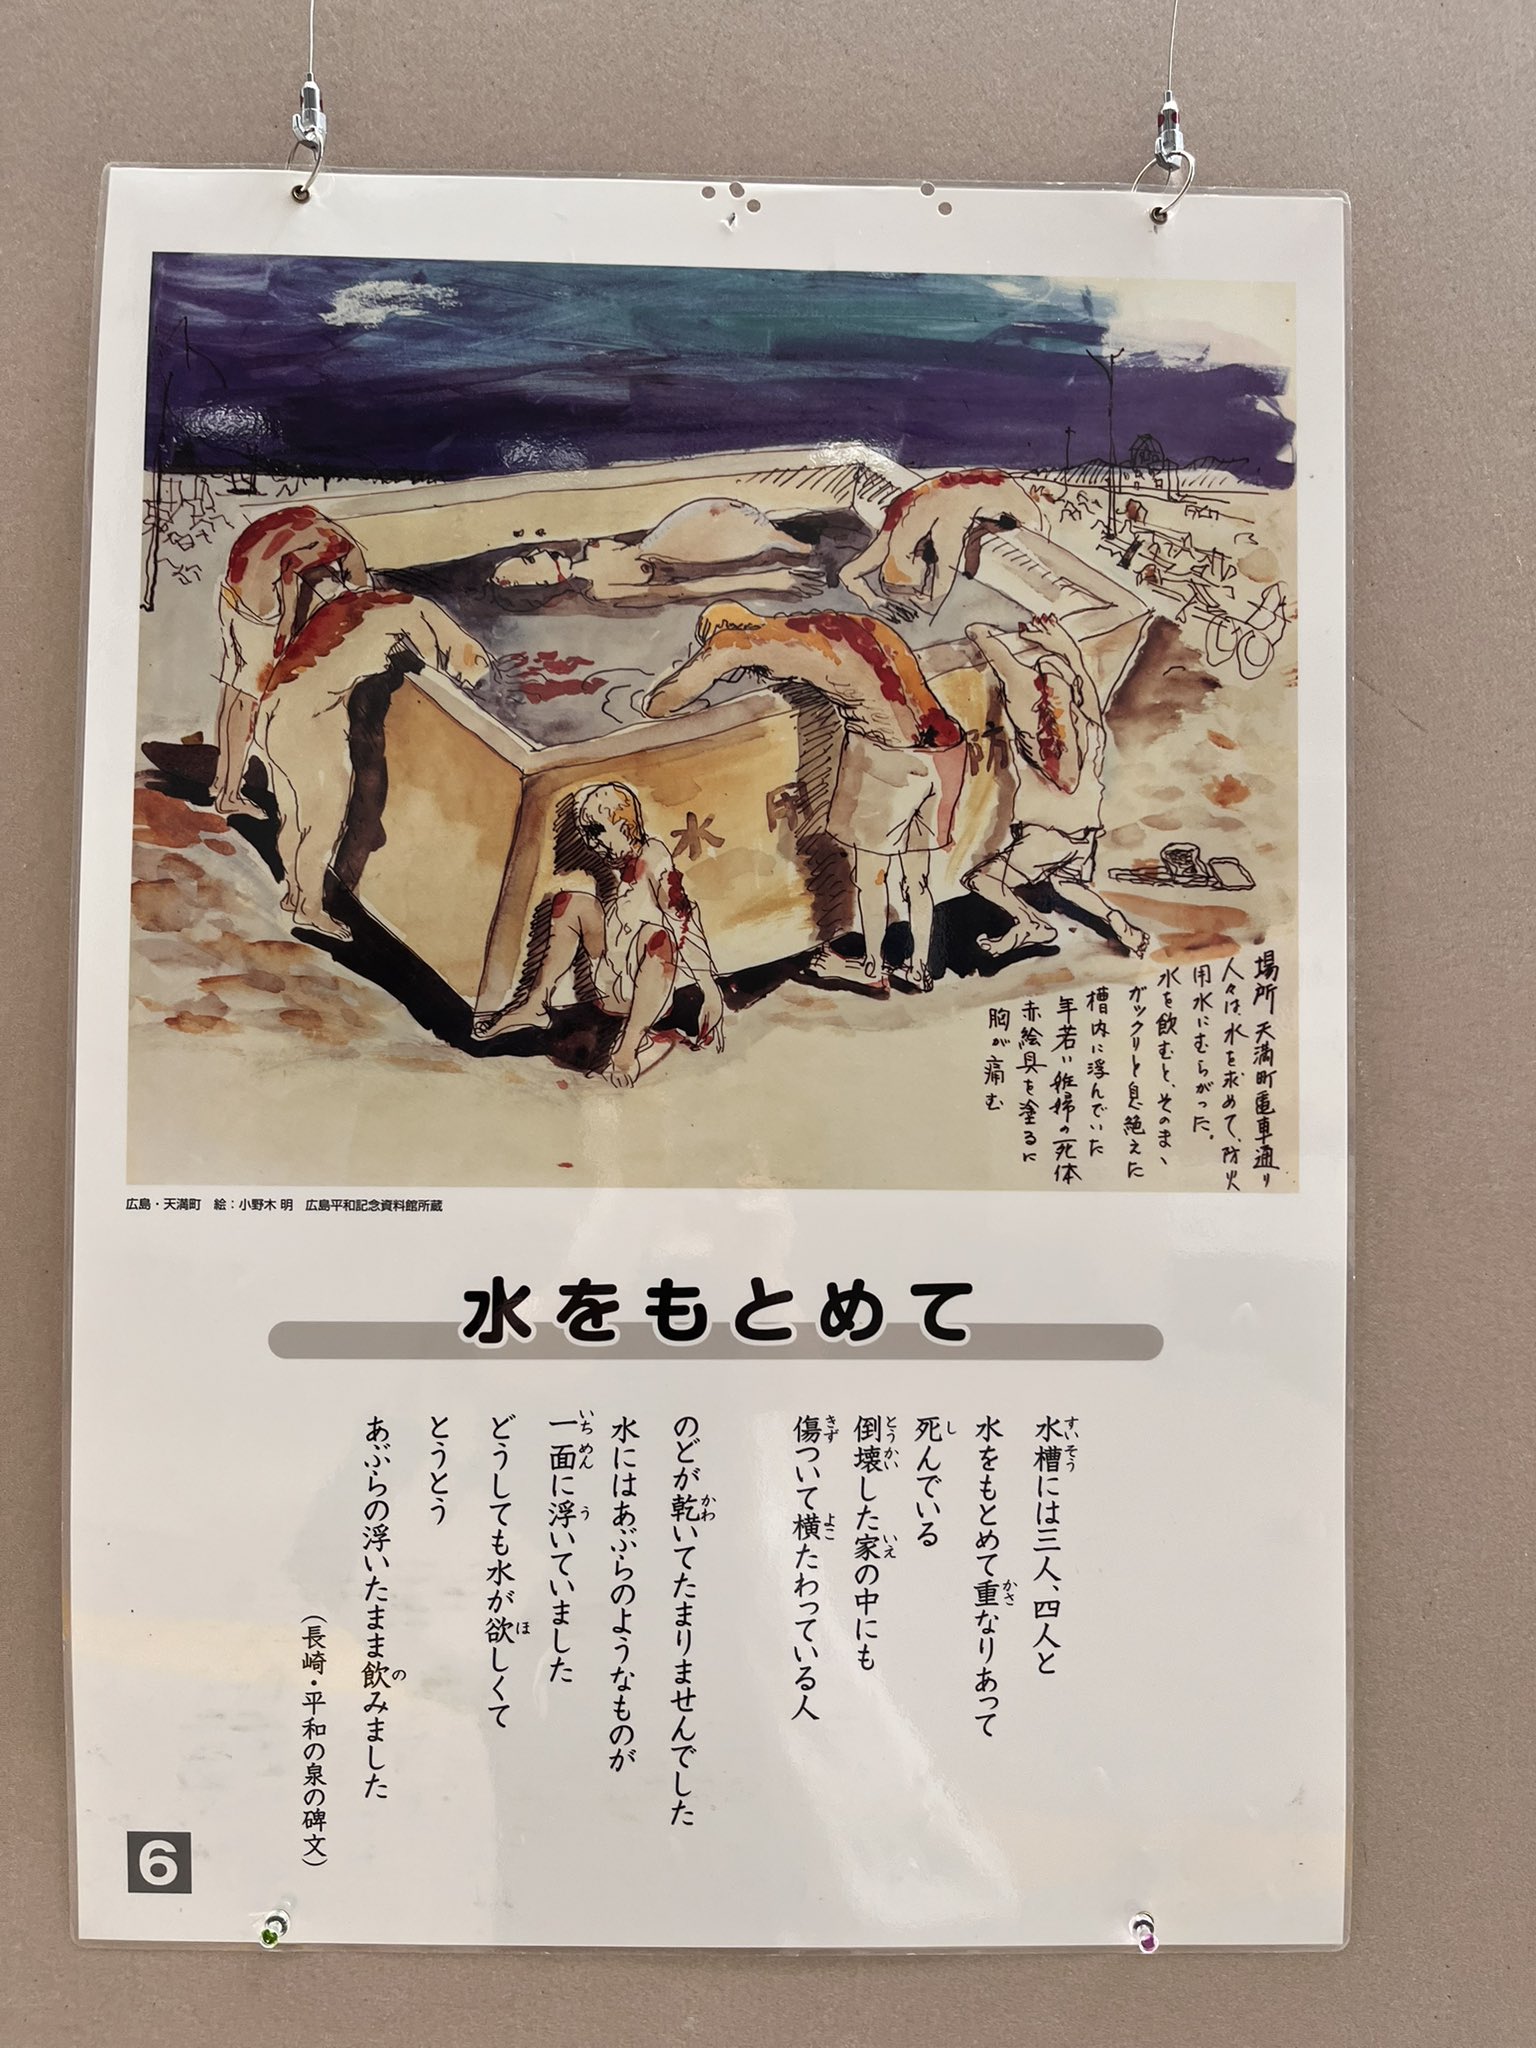 防
用
水
場所 天満町電車通り
人々は、水を求めて、防火
用水にむらがった。
水を飲むと、そのまゝ
ガックリと息絶えた
槽内に浮んでいた
年若い妊婦の死体
赤絵具を塗るに
胸が痛む
広島・天満町　絵：小野木 明　広島平和記念資料館所蔵
水をもとめて
水槽には三人、四人と
水をもとめて重なりあって
死んでいる
倒壊した家の中にも
傷ついて横たわっている人
のどが乾いてたまりませんでした
水にはあぶらのようなものが
一面に浮いていました
どうしても水が欲しくて
とうとう
あぶらの浮いたまま飲みました
（長崎・平和の泉の碑文）
6